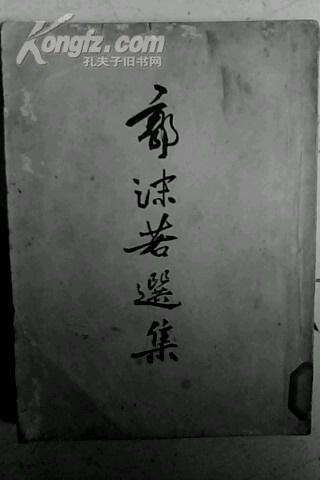 Kongfz.com
孔夫子旧书网
郭沫若選集